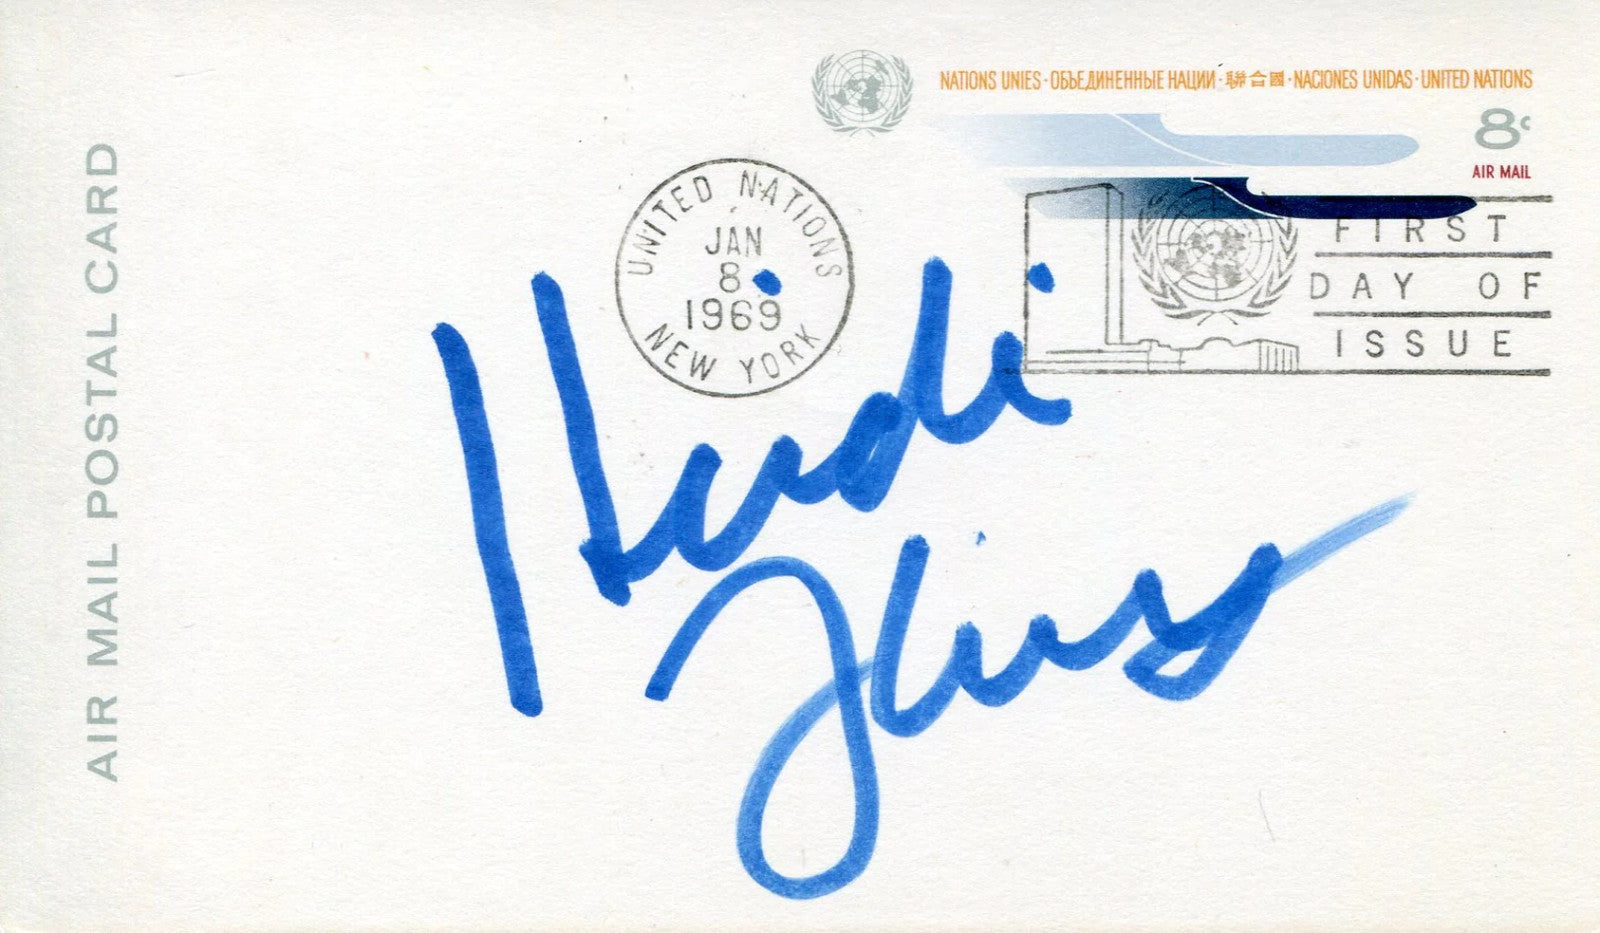 NATIONS UNIES · ОБЪЕДИНЕННЫЕ НАЦИИ · 聯合國 · NACIONES UNIDAS · UNITED NATIONS
8c
AIR MAIL
UNITED NATIONS
JAN
8
1969
NEW YORK
FIRST
DAY OF
ISSUE
AIR MAIL POSTAL CARD
Heidi
Fleiss